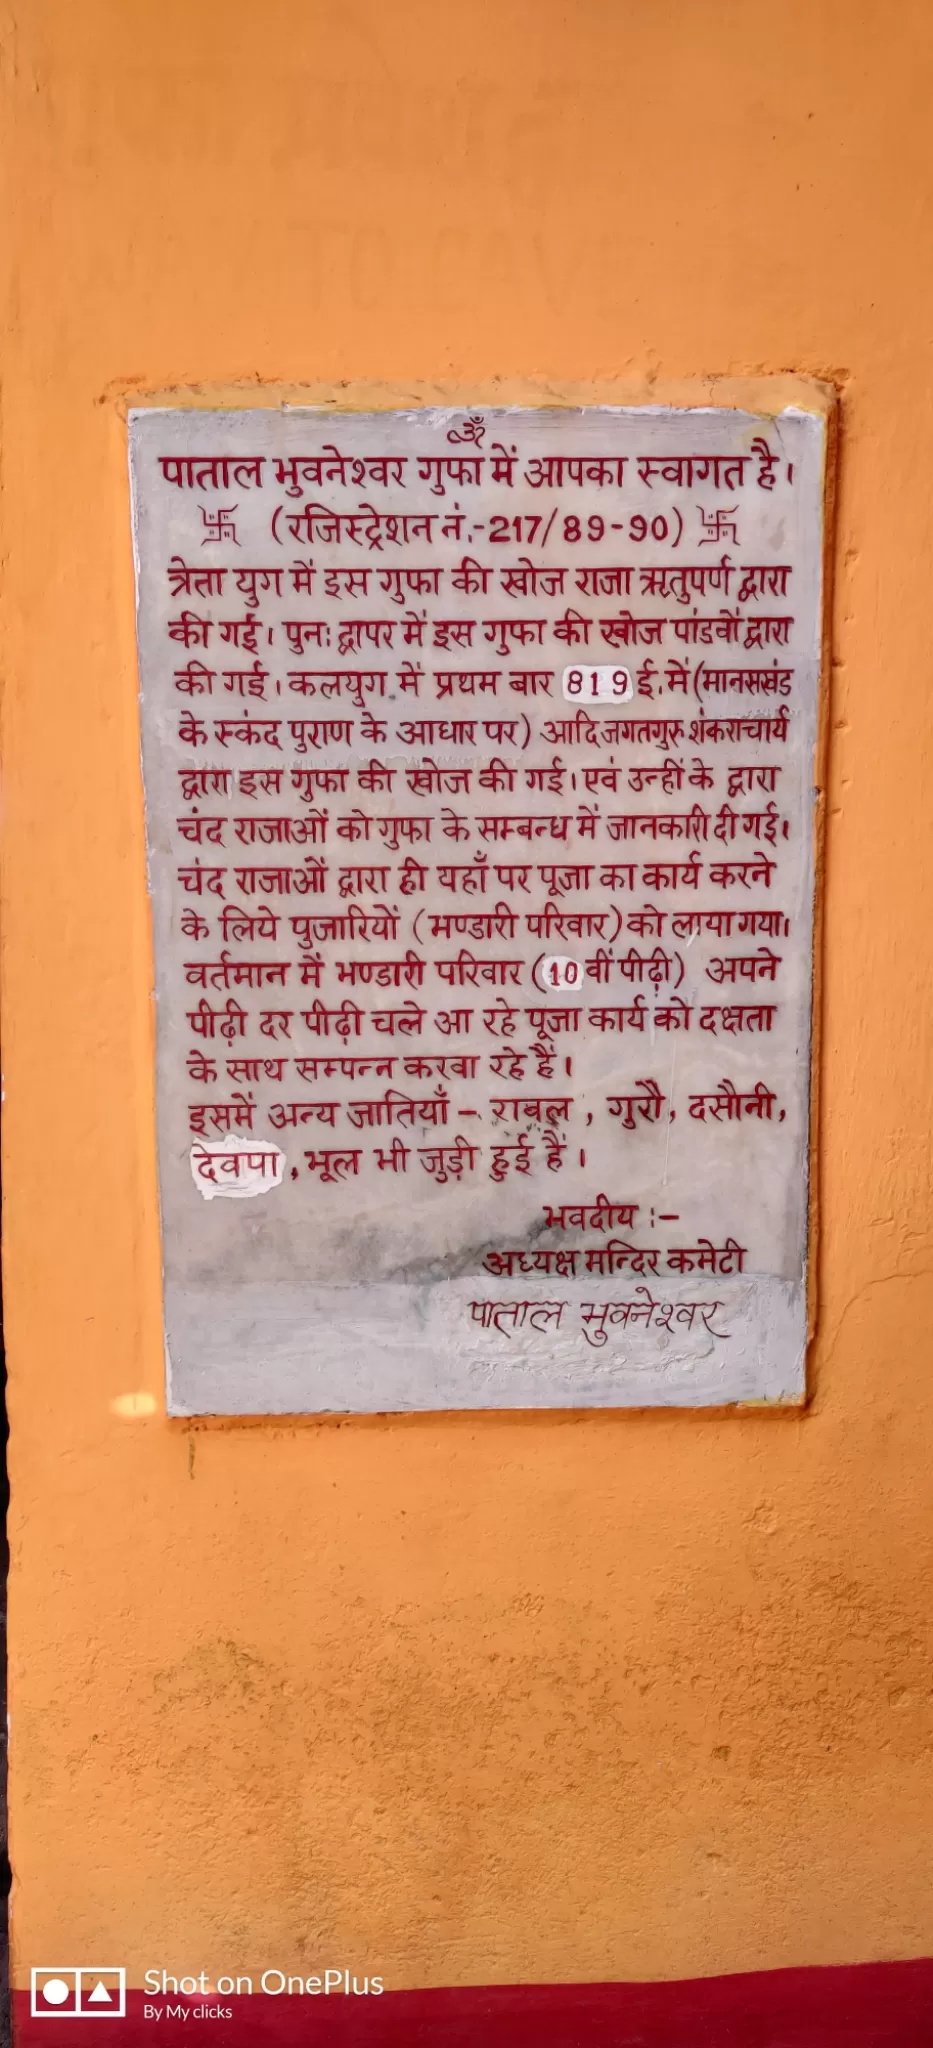 ॐ
पाताल भुवनेश्वर गुफा में आपका स्वागत है।
卐 (रजिस्ट्रेशन नं.-217/89-90) 卐
त्रेता युग में इस गुफा की खोज राजा ऋतुपर्ण द्वारा
की गई। पुनः द्वापर में इस गुफा की खोज पांडवों द्वारा
की गई। कलयुग में प्रथम बार 819 ई. में (मानसखंड
के स्कंद पुराण के आधार पर) आदि जगतगुरु शंकराचार्य
द्वारा इस गुफा की खोज की गई। एवं उन्हीं के द्वारा
चंद राजाओं को गुफा के सम्बन्ध में जानकारी दी गई।
चंद राजाओं द्वारा ही यहाँ पर पूजा का कार्य करने
के लिये पुजारियों (भण्डारी परिवार) को लाया गया।
वर्तमान में भण्डारी परिवार (10 वीं पीढ़ी) अपने
पीढ़ी दर पीढ़ी चले आ रहे पूजा कार्य को दक्षता
के साथ सम्पन्न करवा रहे हैं।
इसमें अन्य जातियाँ - रावल, गुरौ, दसौनी,
देवपा, भूल भी जुड़ी हुई हैं।
भवदीय :-
अध्यक्ष मन्दिर कमेटी
पाताल भुवनेश्वर
Shot on OnePlus
By My clicks